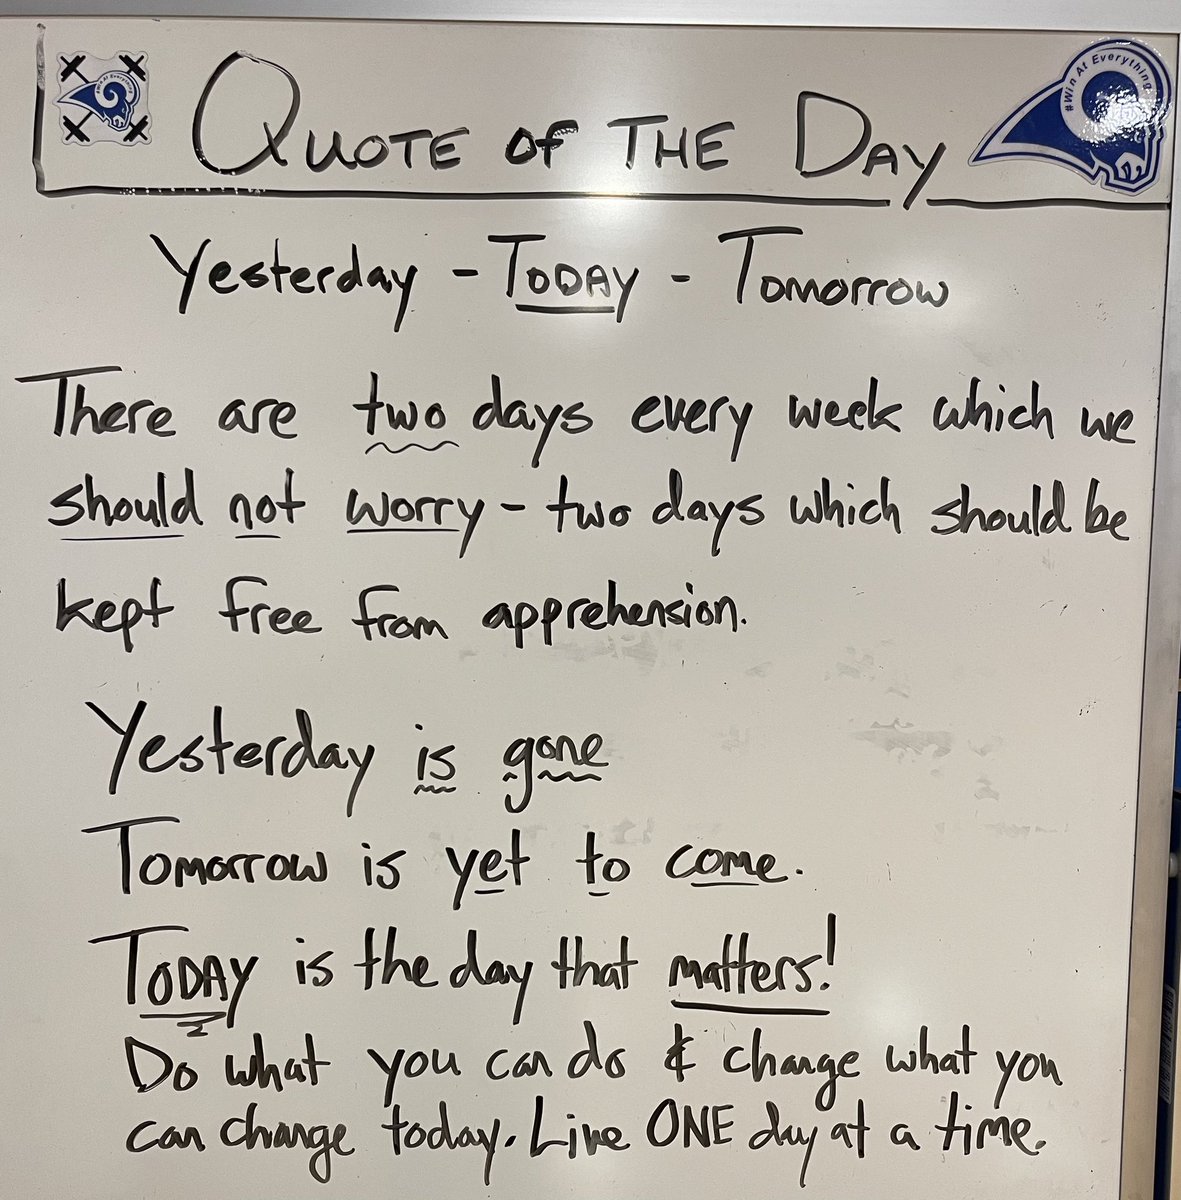 #Win At Everything
QUOTE OF THE DAY
#Win At Everything
Yesterday - TODAY - Tomorrow
There are two days every week which we
should not worry - two days which should be
kept free from apprehension.
Yesterday is gone
Tomorrow is yet to come.
TODAY is the day that matters!
Do what you can do & change what you
can change today. Live ONE day at a time.